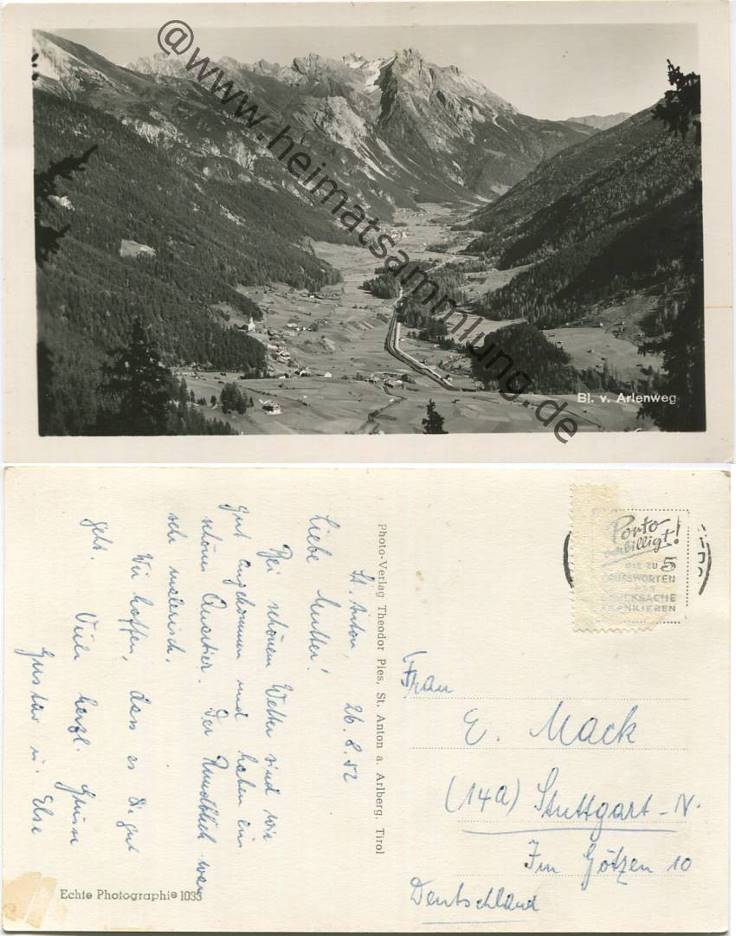 @www.heimatsammlung.de
Bl. v. Arlenweg
St. Anton, 26.8.52
Liebe Mutter!
Bei schönem Wetter sind wir
gut angekommen und haben ein
schönes Quartier. Der Rundblick war
sehr malerisch.
Wir hoffen, dass es Dir gut
geht. Viele herzl. Grüsse
Gustav u. Else
Echte Photographie 1033
Photo-Verlag Theodor Pies, St. Anton a. Arlberg, Tirol
Porto
verbilligt!
BIS ZU 5
GRUSSWORTEN
ALS
DRUCKSACHE
FRANKIEREN
Frau
E. Mack
(14a) Stuttgart-N.
Im Götzen 10
Deutschland